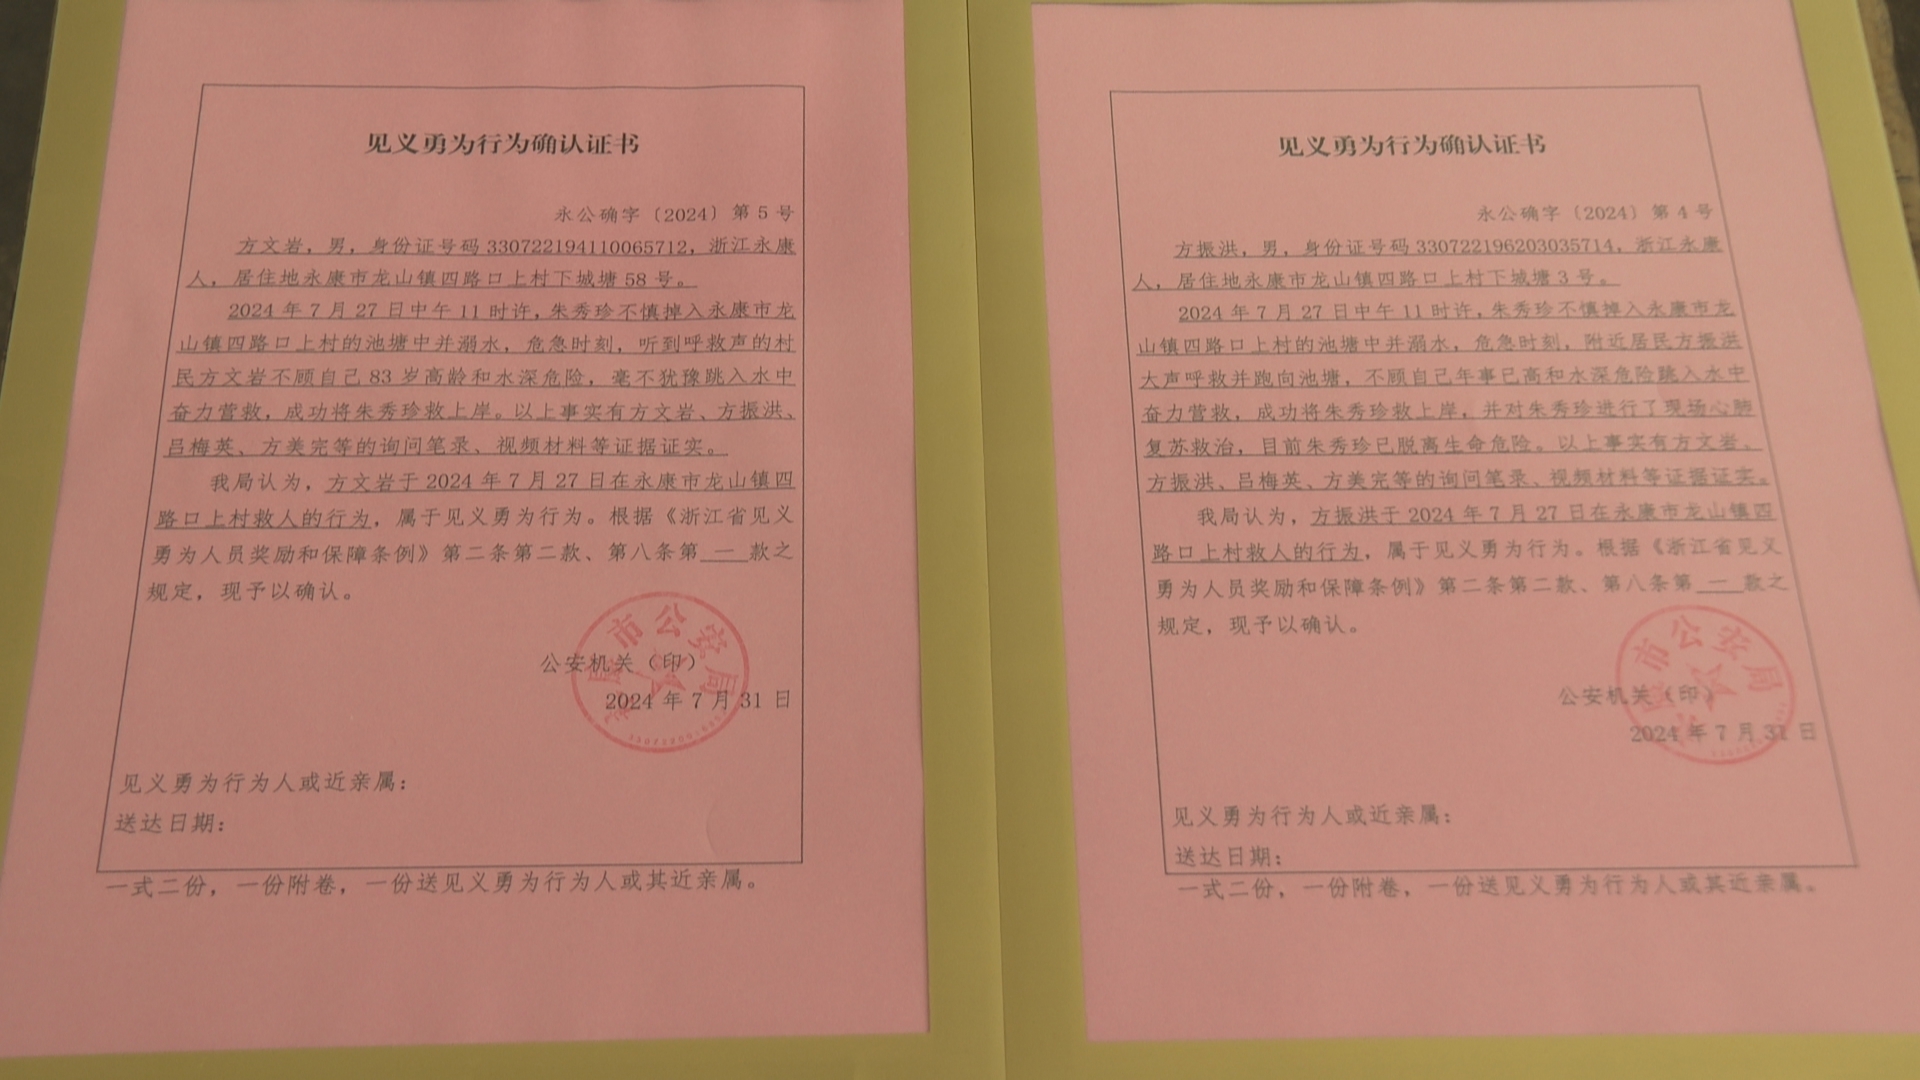 见义勇为行为确认证书
永公确字〔2024〕第 5 号
方文岩，男，身份证号码 330722194110065712，浙江永康
人，居住地永康市龙山镇四路口上村下城塘 58 号。
2024 年 7 月 27 日中午 11 时许，朱秀珍不慎掉入永康市龙
山镇四路口上村的池塘中并溺水，危急时刻，听到呼救声的村
民方文岩不顾自己 83 岁高龄和水深危险，毫不犹豫跳入水中
奋力营救，成功将朱秀珍救上岸。以上事实有方文岩、方振洪、
吕梅英、方美完等的询问笔录、视频材料等证据证实。
我局认为，方文岩于 2024 年 7 月 27 日在永康市龙山镇四
路口上村救人的行为，属于见义勇为行为。根据《浙江省见义
勇为人员奖励和保障条例》第二条第二款、第八条第 一 款之
规定，现予以确认。
公安机关（印）
2024 年 7 月 31 日
市公安局
见义勇为行为人或近亲属：
送达日期：
一式二份，一份附卷，一份送见义勇为行为人或其近亲属。
见义勇为行为确认证书
永公确字〔2024〕第 4 号
方振洪，男，身份证号码 330722196203035714，浙江永康
人，居住地永康市龙山镇四路口上村下城塘 3 号。
2024 年 7 月 27 日中午 11 时许，朱秀珍不慎掉入永康市龙
山镇四路口上村的池塘中并溺水，危急时刻，附近居民方振洪
大声呼救并跑向池塘，不顾自己年事已高和水深危险跳入水中
奋力营救，成功将朱秀珍救上岸，并对朱秀珍进行了现场心肺
复苏救治，目前朱秀珍已脱离生命危险。以上事实有方文岩、
方振洪、吕梅英、方美完等的询问笔录、视频材料等证据证实。
我局认为，方振洪于 2024 年 7 月 27 日在永康市龙山镇四
路口上村救人的行为，属于见义勇为行为。根据《浙江省见义
勇为人员奖励和保障条例》第二条第二款、第八条第 一 款之
规定，现予以确认。
公安机关（印）
2024 年 7 月 31 日
市公安局
见义勇为行为人或近亲属：
送达日期：
一式二份，一份附卷，一份送见义勇为行为人或其近亲属。